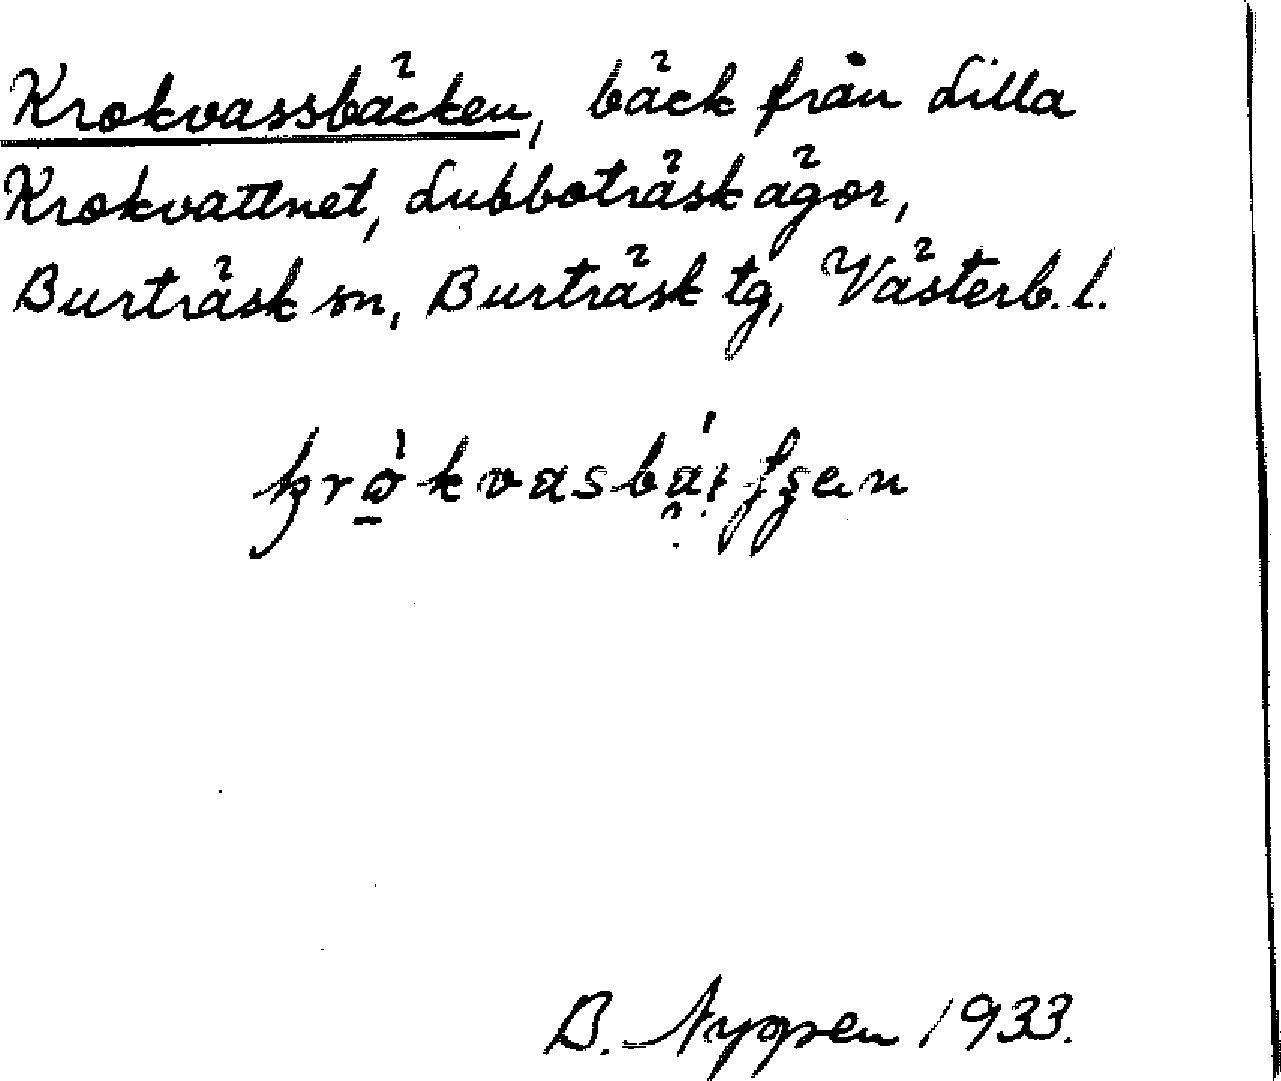 Krokvassbäcken, bäck från Lilla
Krokvattnet, Lubboträsk ägor,
Burträsk sn, Burträsk tg, Västerb. l.
B. Nygren 1933.